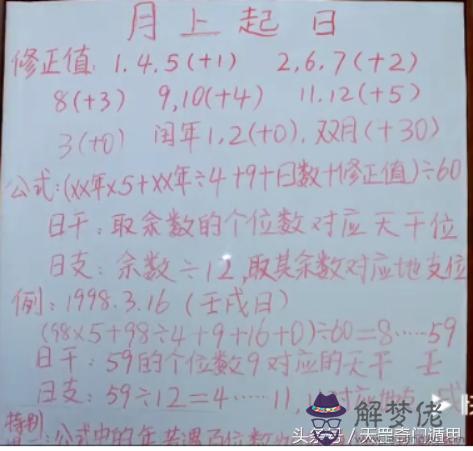 月上起日
修正值: 1.4.5(+1) 2,6,7(+2)
8(+3) 9,10(+4) 11.12(+5)
3(+0) 闰年1,2(+0), 双月(+30)
公式:(XX年×5+XX年÷4+9+日数+修正值)÷60
日干: 取余数的个位数对应天干位
日支: 余数÷12,取其余数对应地支位
例: 1998.3.16 (壬戌日)
(98×5+98÷4+9+16+0)÷60=8……59
日干: 59的个位数9对应的天干 壬
日支: 59÷12=4……11,
特别
:公式中的年若遇百位数
头条号/天罡奇门遁甲
解梦佬